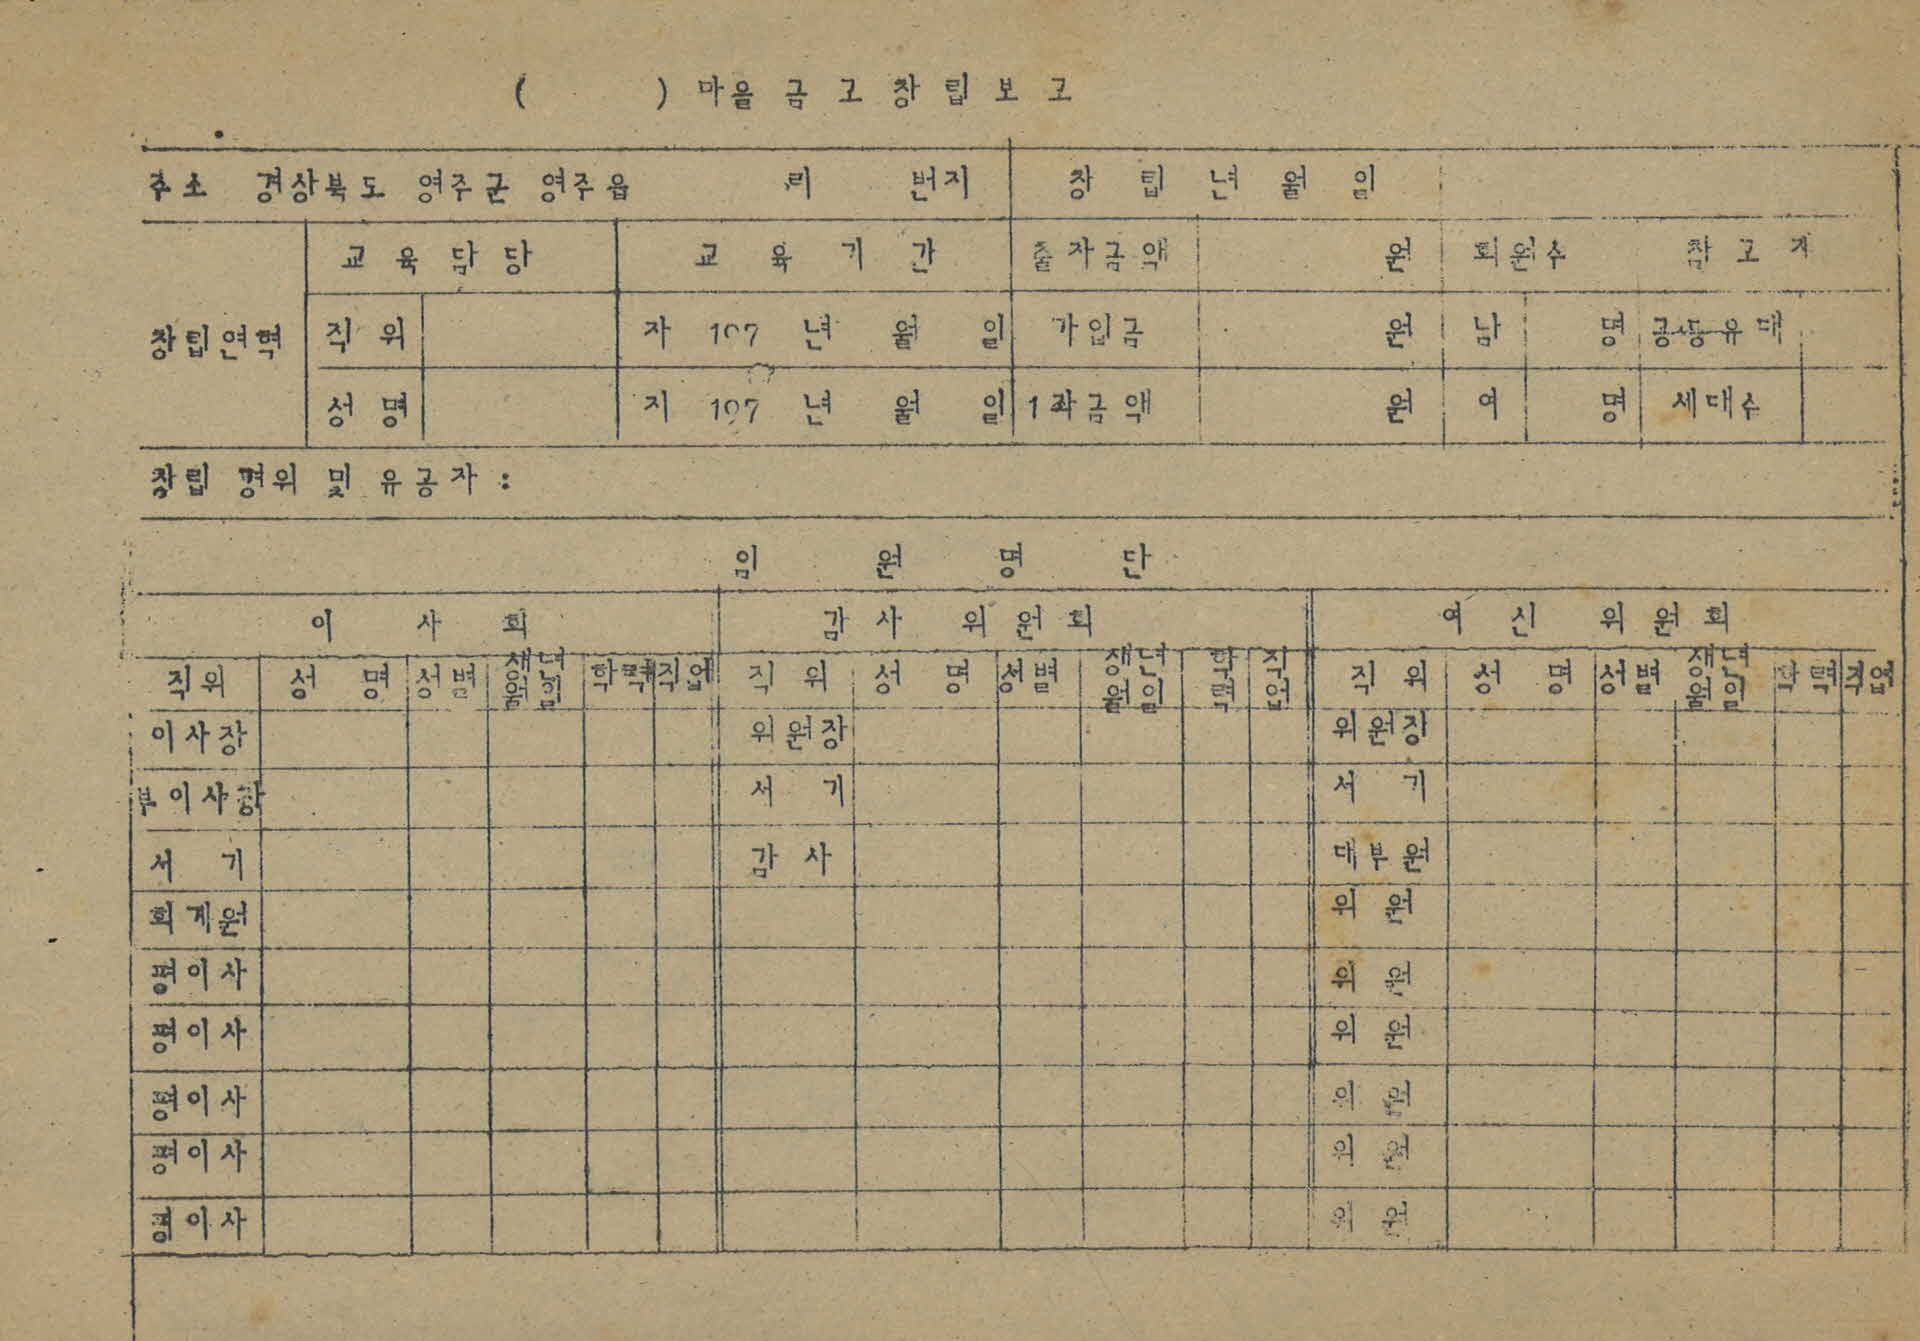 ( ) 마을금고창립보고
주소 경상북도 영주군 영주읍 리 번지 창립년월일
교육담당 교육기간 출자금액 원 회원수 참고
창립연혁 직위 자 197 년 월 일 가입금 원 남 명 공동유대
성명 지 197 년 월 일 1좌금액 원 여 명 세대수
창립 경위 및 유공자 :
임원명단
이사회 감사위원회 여신위원회
직위 성명 성별 생년월일 학력 직업 직위 성명 성별 생년월일 학력 직업 직위 성명 성별 생년월일 학력 직업
이사장 위원장 위원장
부이사장 서기 서기
서기 감사 대부원
회계원 위원
평이사 위원
평이사 위원
평이사 위원
평이사 위원
평이사 위원